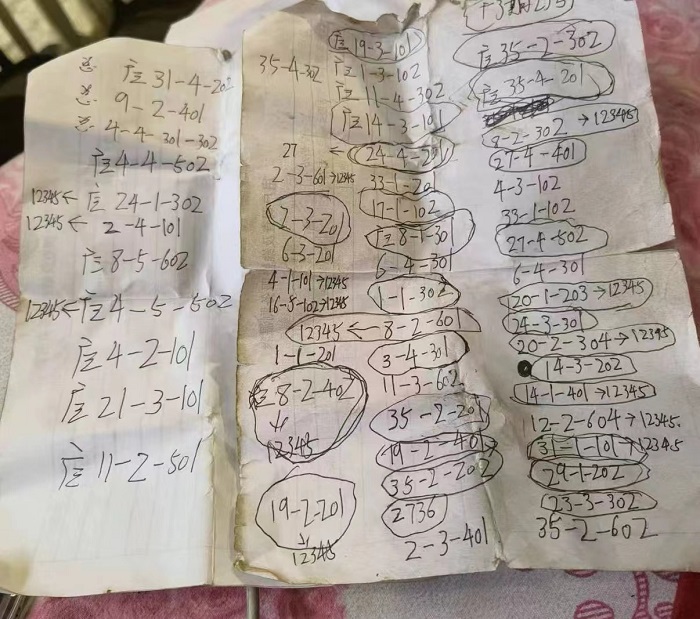 31-4-202
9-2-401
4-4-301-302
4-4-502
12345← 24-1-302
12345← 2-4-101
8-5-602
12345← 4-5-502
4-2-101
21-3-101
11-2-501
35-4-302
27 ←
2-3-601→12345
7-3-201
6-3-201
4-1-101→12345
16-5-102→12345
12345← 8-2-601
1-1-201
8-2-402
↓
12345
19-2-201
↓
12345
19-3-101
1-3-102
11-4-302
14-3-101
24-4-201
33-1-201
17-1-102
8-1-301
6-4-301
1-1-302
3-4-301
11-3-602
35-2-201
19-2-401
35-2-202
2736
2-3-401
35-2-302
35-4-201
8-2-302→12345
27-4-401
4-3-102
33-1-102
27-4-502
6-4-301
20-1-203→12345
24-3-301
20-2-304→12345
14-3-202
14-1-401→12345
12-2-604→12345
-101→12345
29-1-202
23-3-302
35-2-602